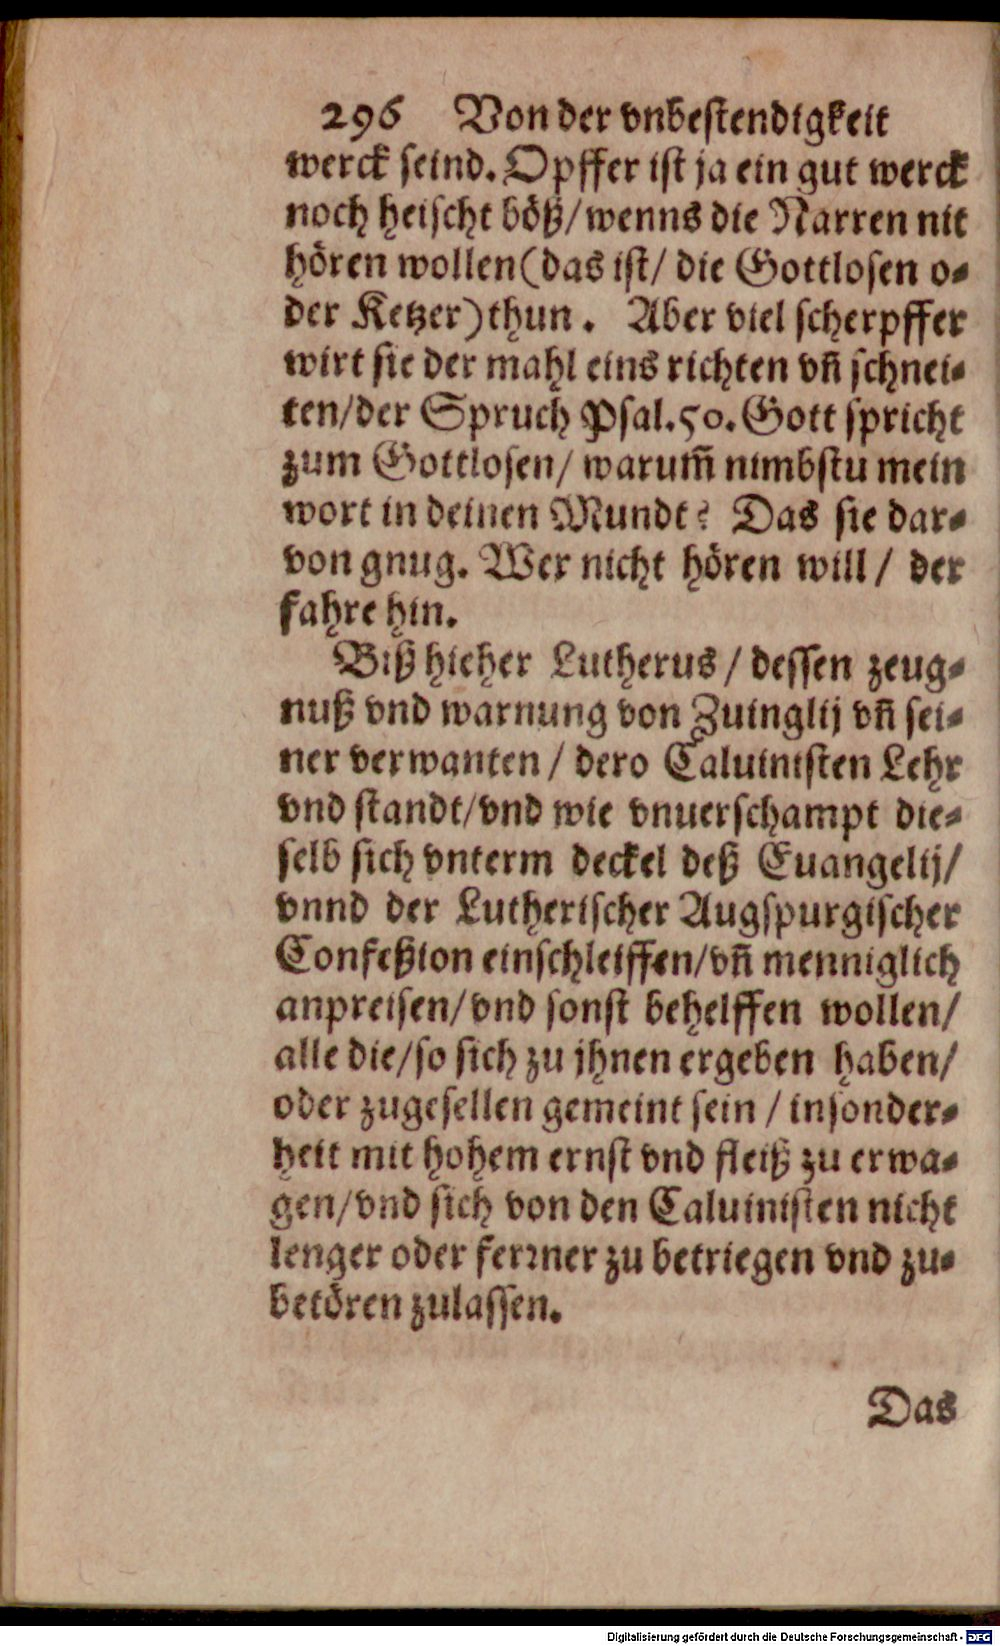 296 Von der vnbestendigkeit
werck seind. Opffer ist ja ein gut werck
noch heischt böß/wenns die Narren nit
hören wollen(das ist/ die Gottlosen o-
der Ketzer)thun. Aber viel scherpffer
wirt sie der mahl eins richten vñ schnei-
ten/der Spruch Psal.50. Gott spricht
zum Gottlosen/ warum̃ nimbstu mein
wort in deinen Mundt? Das sie dar-
von gnug. Wer nicht hören will/ der
fahre hin.
Biß hieher Lutherus/ dessen zeug-
nuß vnd warnung von Zuinglij vñ sei-
ner verwanten/ dero Caluinisten Lehr
vnd standt/vnd wie vnuerschampt die-
selb sich vnterm deckel deß Euangelij/
vnnd der Lutherischer Augspurgischer
Confeßion einschleiffen/vñ menniglich
anpreisen/vnd sonst behelffen wollen/
alle die/so sich zu jhnen ergeben haben/
oder zugesellen gemeint sein/ insonder-
heit mit hohem ernst vnd fleiß zu erwa-
gen/vnd sich von den Caluinisten nicht
lenger oder ferꝛner zu betriegen vnd zu-
betören zulassen.
Das
Digitalisierung gefördert durch die Deutsche Forschungsgemeinschaft - DFG